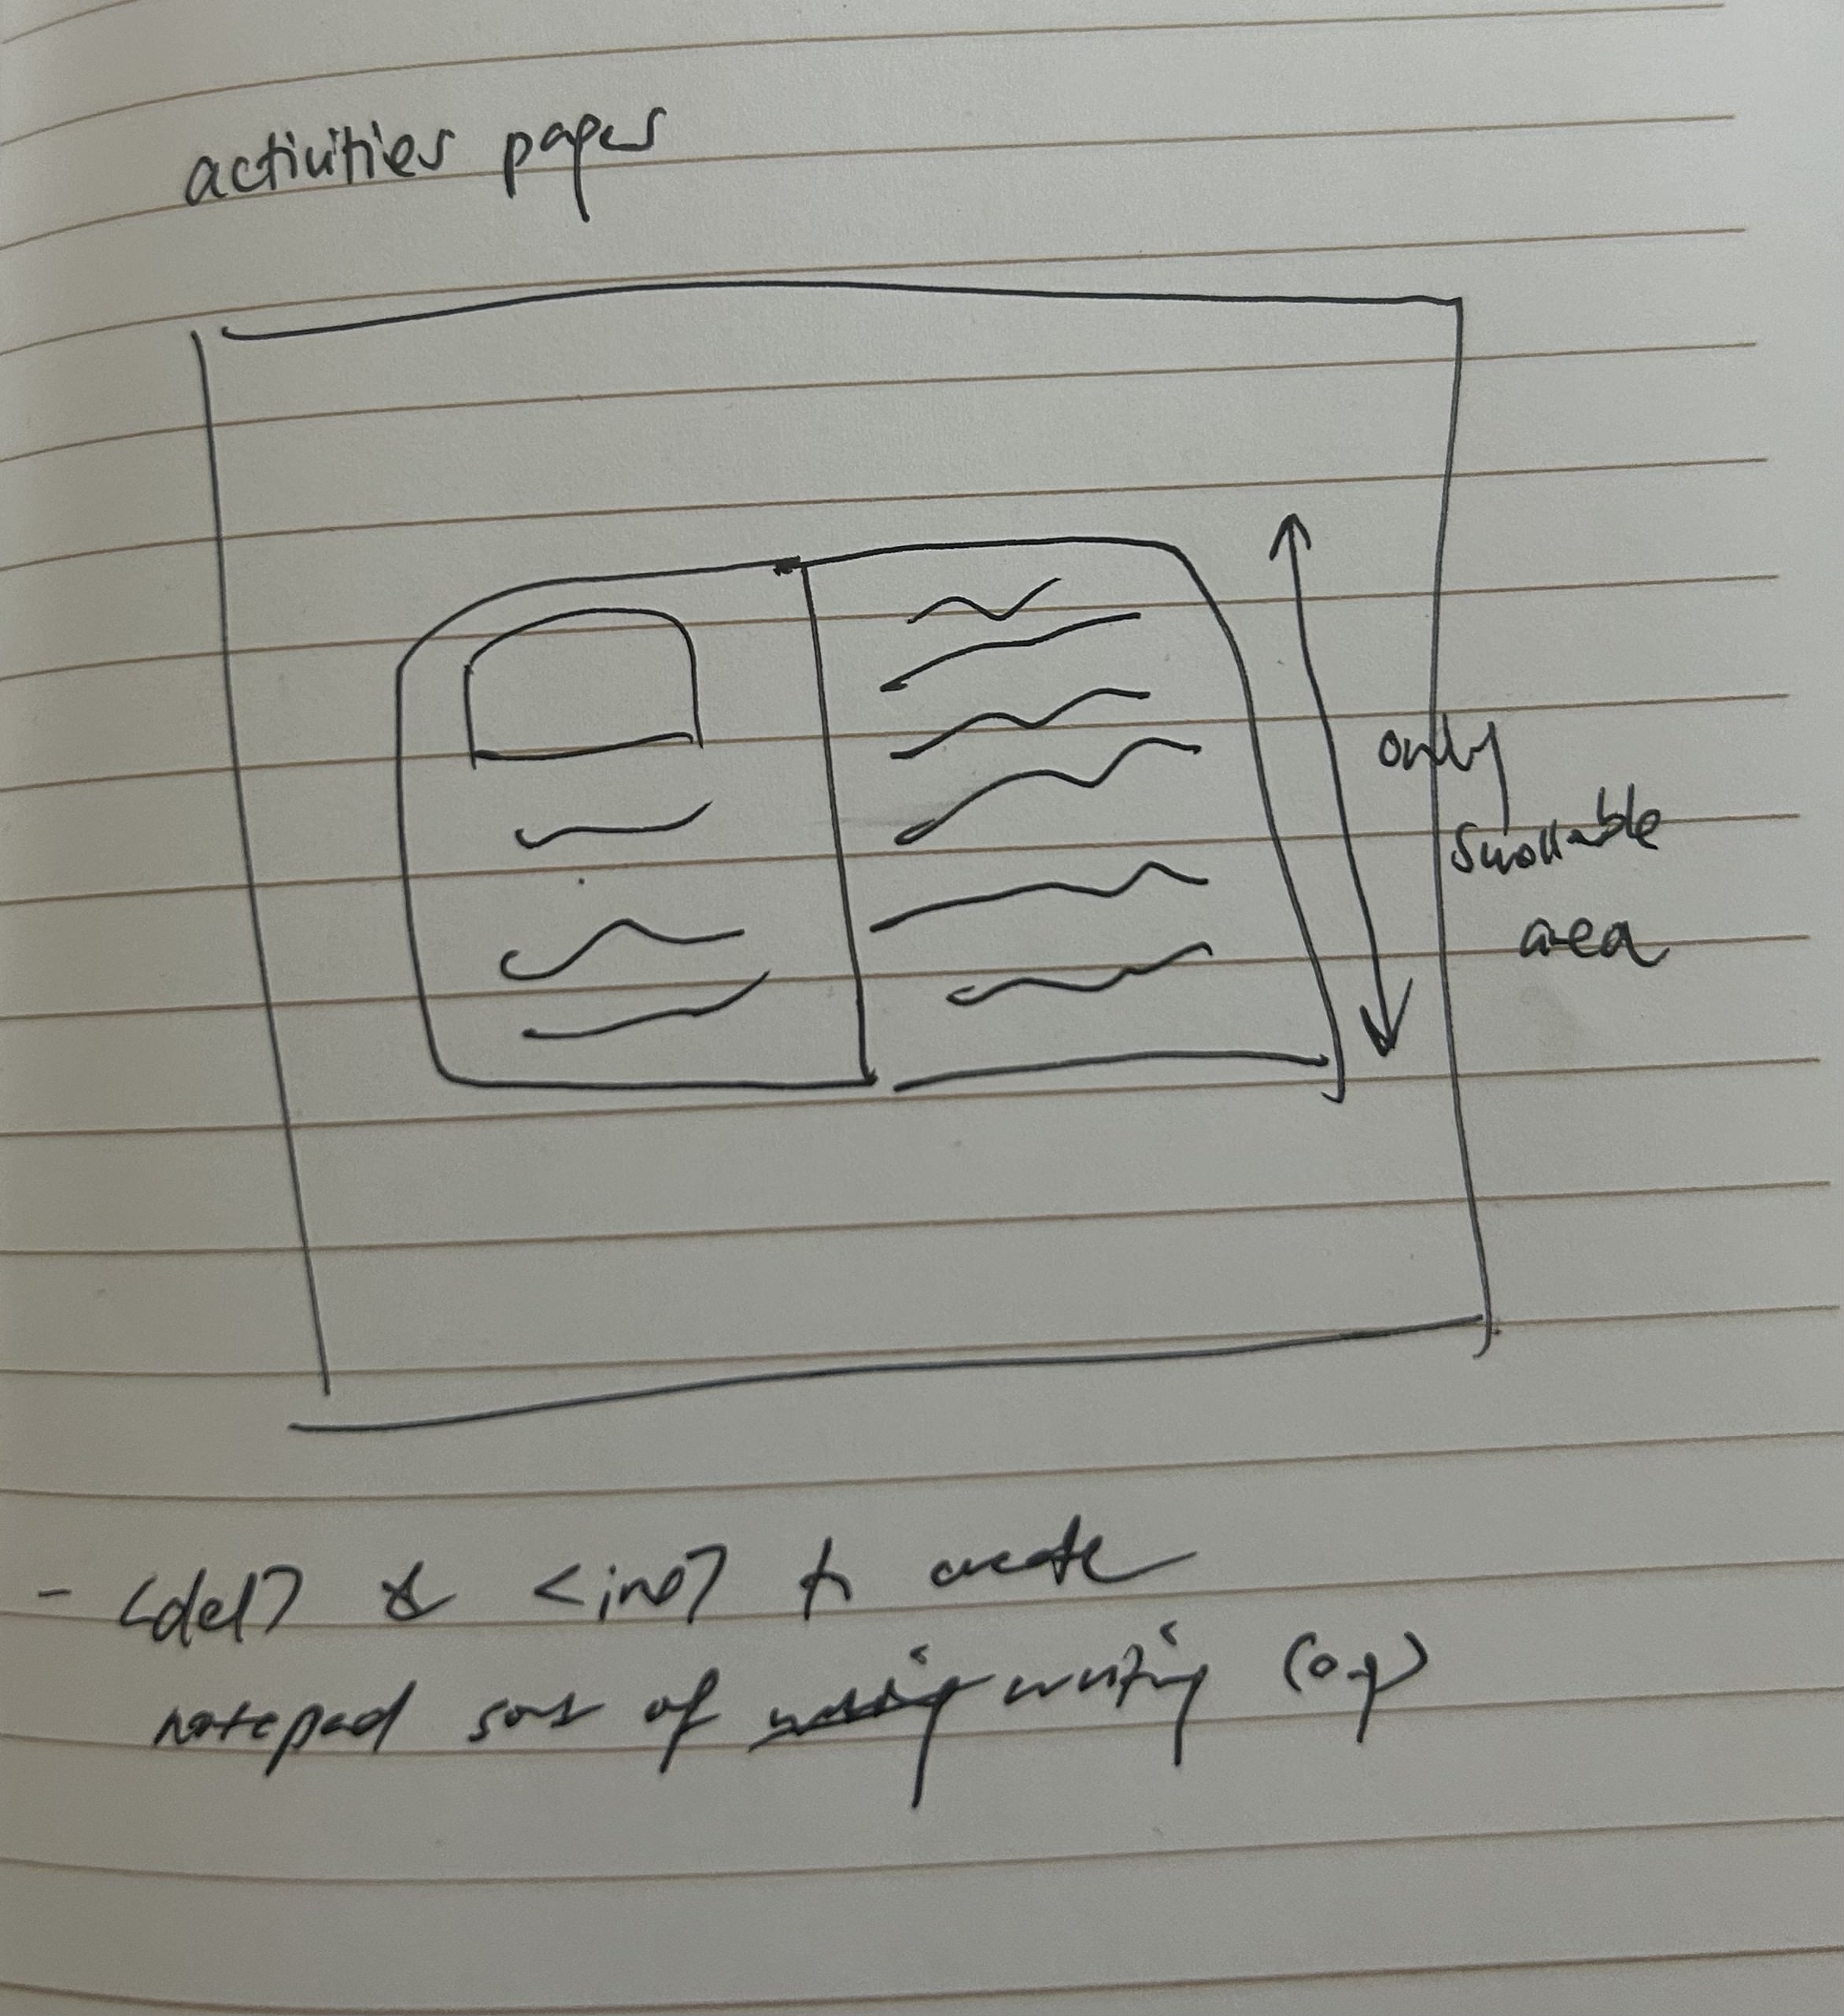 activities pages
only
scrollable
area
- <del> & <ins> to create
notepad sort of writing